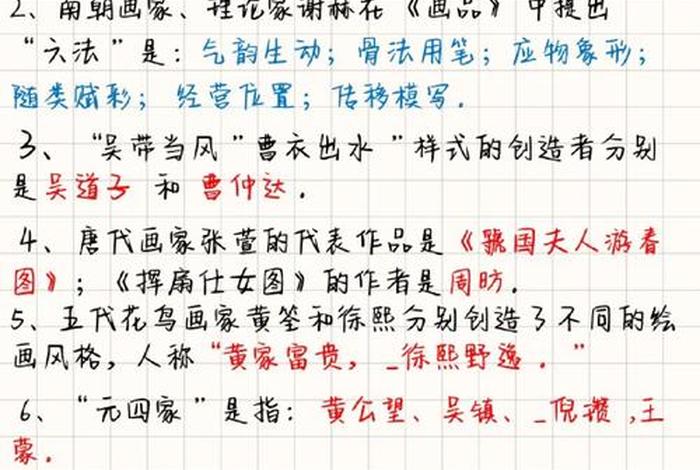 2、南朝画家、理论家谢赫在《画品》中提出
“六法”是：气韵生动；骨法用笔；应物象形；
随类赋彩；经营位置；传移模写.
3、“吴带当风”曹衣出水”样式的创造者分别
是吴道子 和 曹仲达.
4、唐代画家张萱的代表作品是《虢国夫人游春
图》；《挥扇仕女图》的作者是周昉.
5、五代花鸟画家黄筌和徐熙分别创造了不同的绘
画风格，人称“黄家富贵，_徐熙野逸.”
6、“元四家”是指：黄公望、吴镇、_倪瓒,王
蒙.